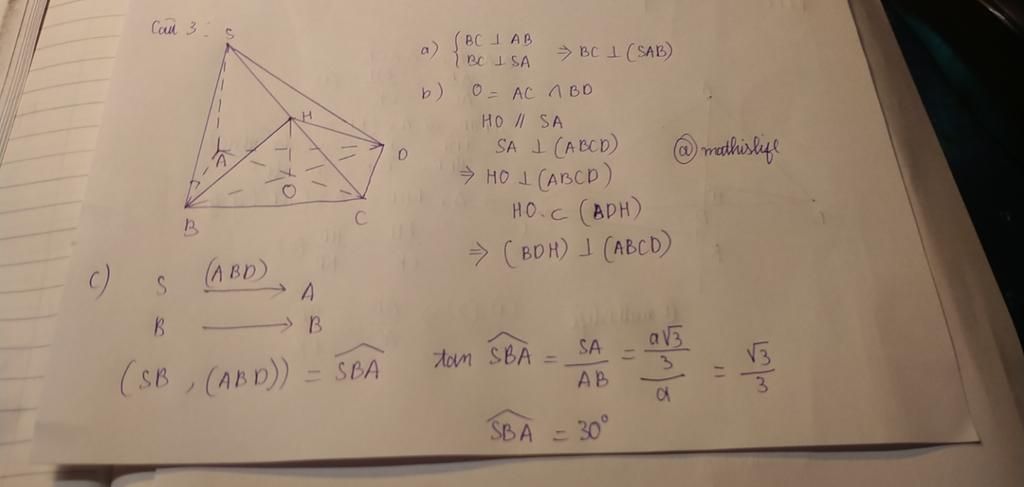 Câu 3:
S
H
A
D
O
B
C
a) { BC ⊥ AB
BC ⊥ SA ⇒ BC ⊥ (SAB)
b) O = AC ∩ BD
HO // SA
SA ⊥ (ABCD)
@mathislife
⇒ HO ⊥ (ABCD)
HO ⊂ (BDH)
⇒ (BDH) ⊥ (ABCD)
c) S (ABD)⟶ A
B ⟶ B
(SB, (ABD)) = \widehat{SBA}
tan \widehat{SBA} = SA/AB = (a√3/3)/a = √3/3
\widehat{SBA} = 30°